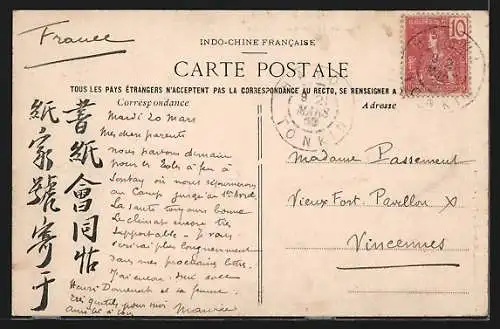 France
INDO-CHINE FRANÇAISE
CARTE POSTALE
TOUS LES PAYS ÉTRANGERS N'ACCEPTENT PAS LA CORRESPONDANCE AU RECTO, SE RENSEIGNER A
Correspondance
Adresse
10
9 21
MARS
TONKIN
Mardi 20 Mars
Mes chers parents
nous partons demain
pour les Ecoles à feu à
Sontay où nous séjournerons
au Camp jusqu'au
La santé toujours bonne
Le climat encore très
supportable - Je vous
écrirai plus longuement
dans ma prochaine lettre.
J'ai encore
Henri et sa femme
très gentils pour moi
Maurice
書紙會同帖
紙家號寄于
Madame Passement
Vieux Fort. Pavillon X
Vincennes